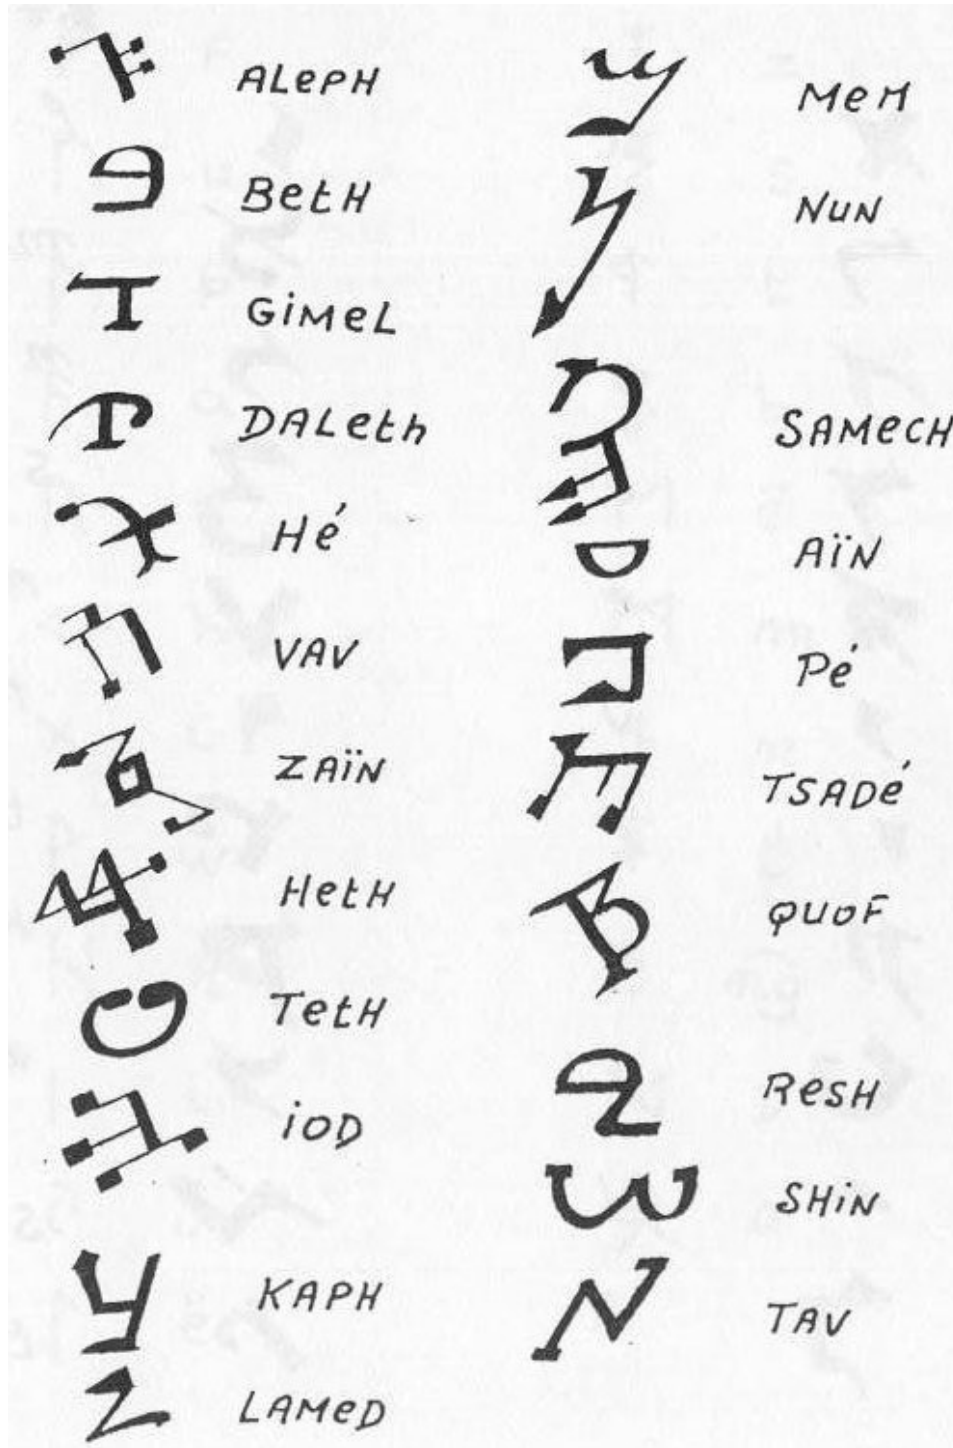 ALepH
BetH
GiMeL
DALeth
Hé
VAV
ZAÏN
HetH
TetH
iOD
KAPH
LAMeD
MeM
NUN
SAMecH
AÏN
Pé
TSADé
QUOF
ResH
SHiN
TAV